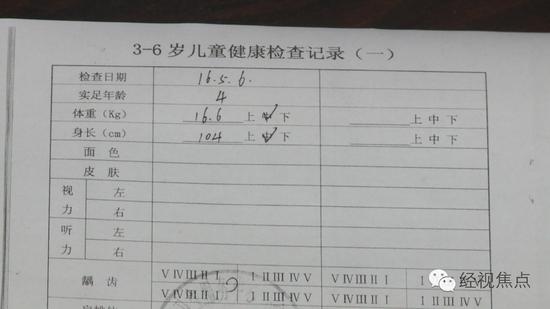 3-6 岁儿童健康检查记录（一）
检查日期 16.5.6.
实足年龄 4
体重（Kg） 16.6 上 中 下 上 中 下
身长（cm） 104 上 中 下 上 中 下
面 色
皮 肤
视力 左
右
听力 左
右
龋 齿 Ⅴ Ⅳ Ⅲ Ⅱ Ⅰ Ⅰ Ⅱ Ⅲ Ⅳ Ⅴ Ⅴ Ⅳ Ⅲ Ⅱ Ⅰ Ⅰ
Ⅴ Ⅳ Ⅲ Ⅱ Ⅰ Ⅰ Ⅱ Ⅲ Ⅳ Ⅴ Ⅴ Ⅳ Ⅲ Ⅱ Ⅰ Ⅰ Ⅱ Ⅲ Ⅳ Ⅴ
经视焦点